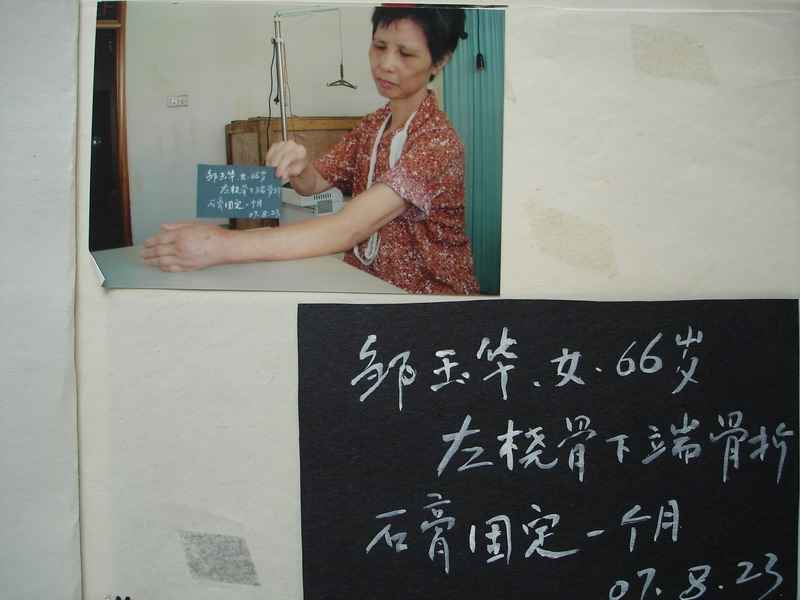 邹玉华.女.66岁
左桡骨下端骨折
石膏固定一个月
07.8.23
邹玉华.女.66岁
左桡骨下端骨折
石膏固定一个月
07.8.23